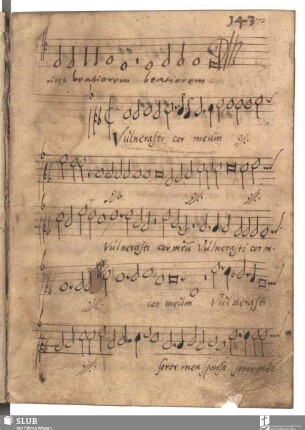 343
beatiorem beatiorem
Vulnerasti cor meum ij.
ij. ij. ij.
Vulnerasti cor meũ Vulnerasti cor m.
ij. cor meum Vulnerasti
ij. soror mea sponsa soror mea
SLUB